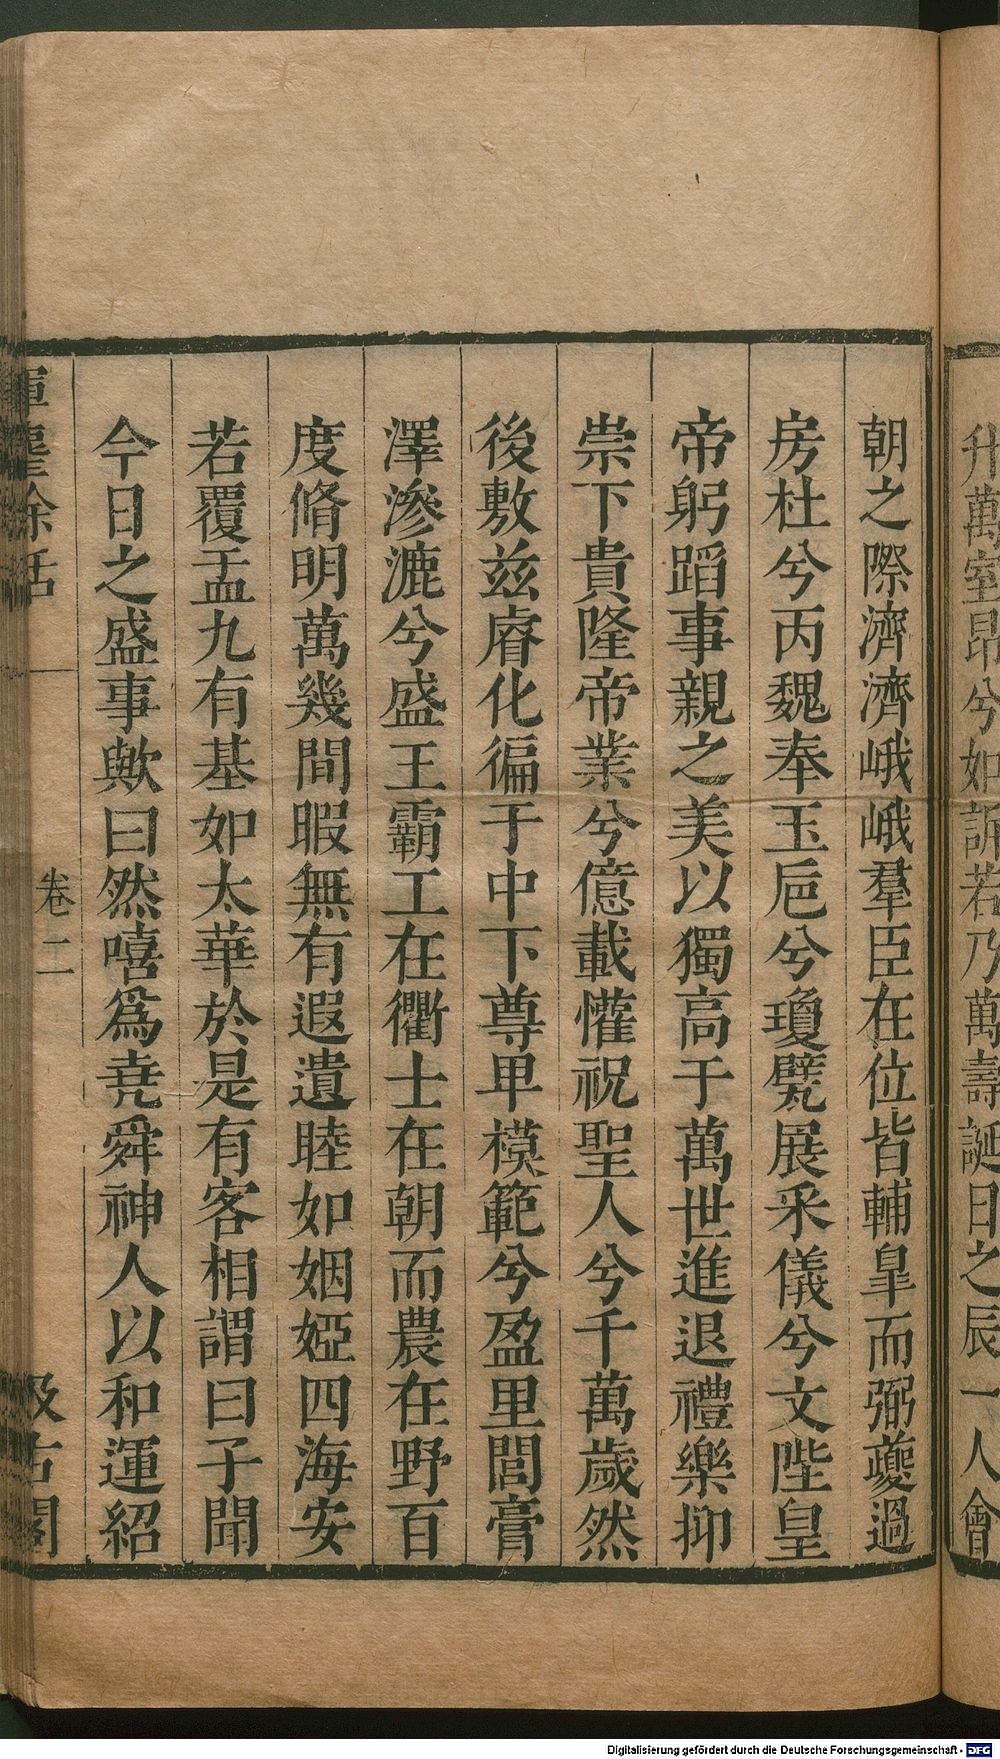 升萬室昂兮如訴若乃萬壽誕日之辰一人會
朝之際濟濟峨峨羣臣在位皆輔皐而弼夔過
房杜兮丙魏奉玉巵兮瓊甓展采儀兮文陛皇
帝躬蹈事親之美以獨高于萬世進退禮樂抑
崇下貴隆帝業兮億載懽祝聖人兮千萬歲然
後敷兹睿化徧于中下尊卑模範兮盈里閭膏
澤滲漉兮盛王霸工在衢士在朝而農在野百
度脩明萬幾間暇無有遐遺睦如姻婭四海安
若覆盂九有基如太華於是有客相謂曰子聞
今日之盛事歟曰然嘻爲堯舜神人以和運紹
揮麈餘話
卷二
汲古閣
Digitalisierung gefördert durch die Deutsche Forschungsgemeinschaft - DFG